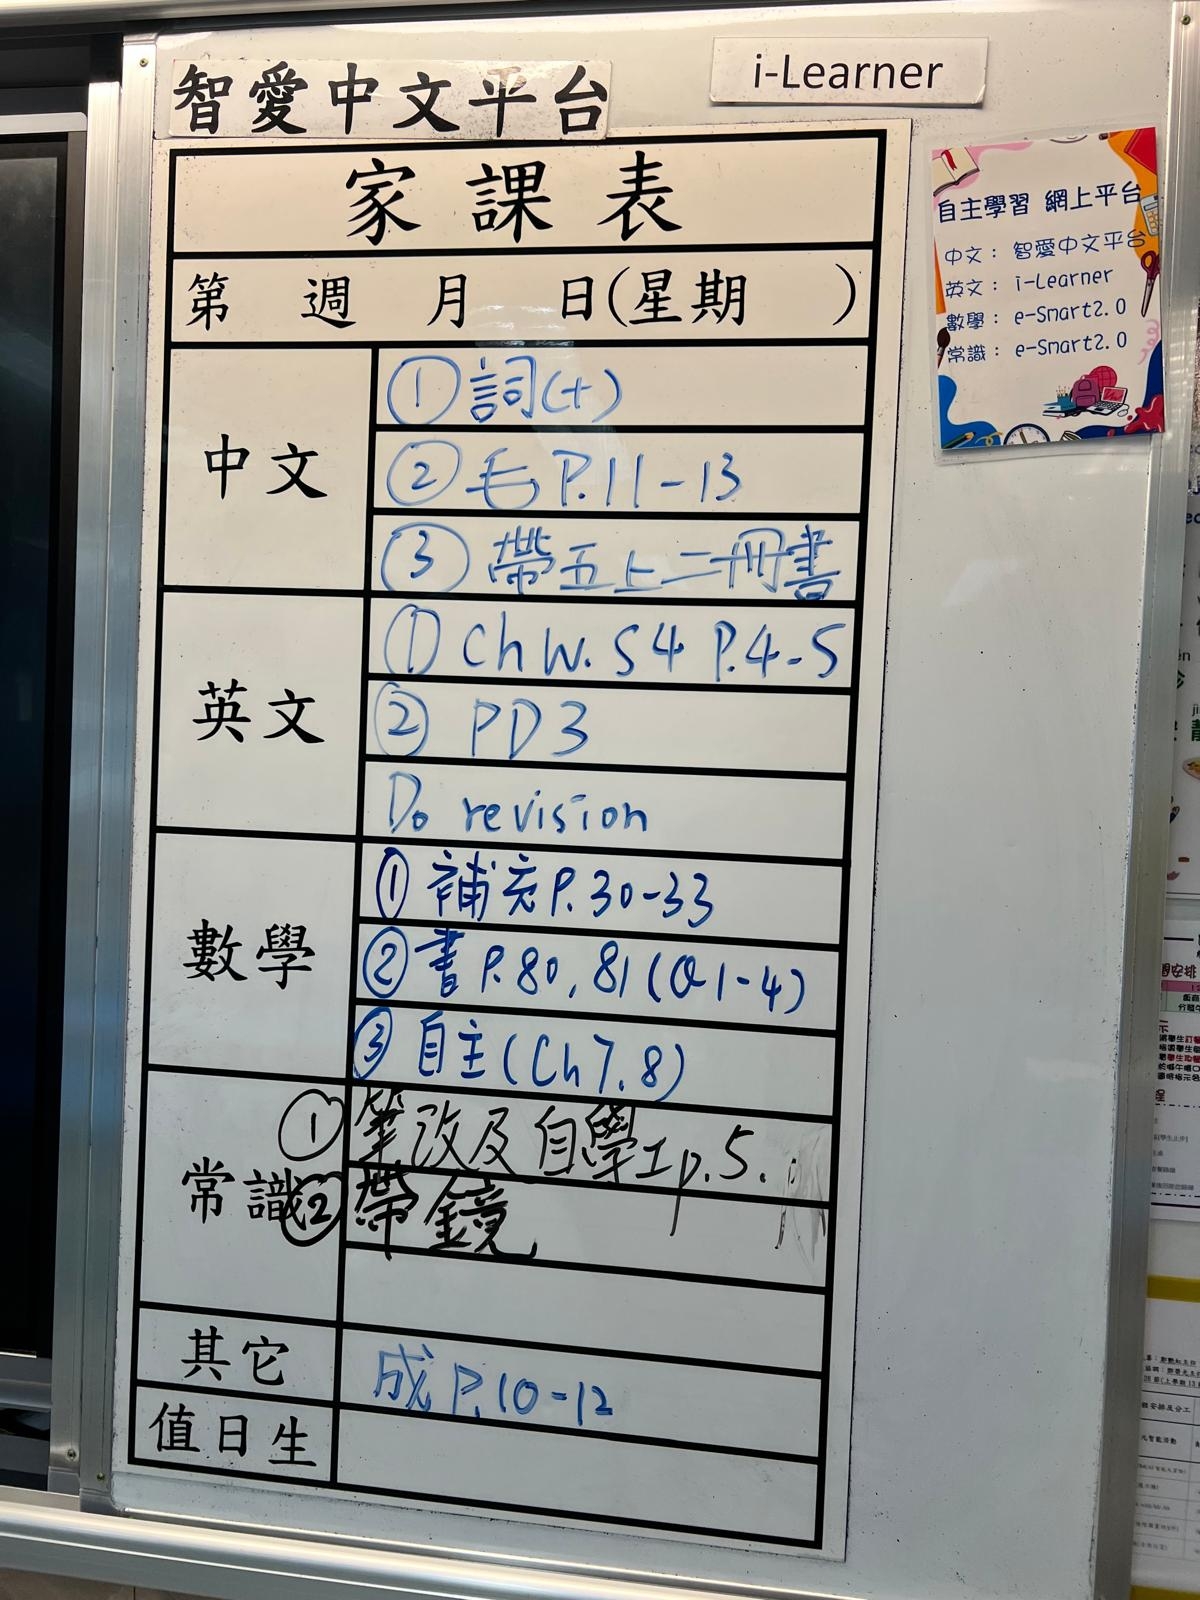 智愛中文平台
i-Learner
家課表
第 週 月 日(星期 )
中文
① 詞(十)
② 毛 P.11-13
③ 帶五上二冊書
英文
① Ch W. S4 P.4-5
② PD3
Do revision
數學
① 補充 P.30-33
② 書 P.80, 81 (Q1-4)
③ 自主 (Ch7.8)
常識
① 筆改及自學工p.5.
② 帶鏡
其它
成 P.10-12
值日生
自主學習 網上平台
中文： 智愛中文平台
英文： i-Learner
數學： e-Smart2.0
常識： e-Smart2.0